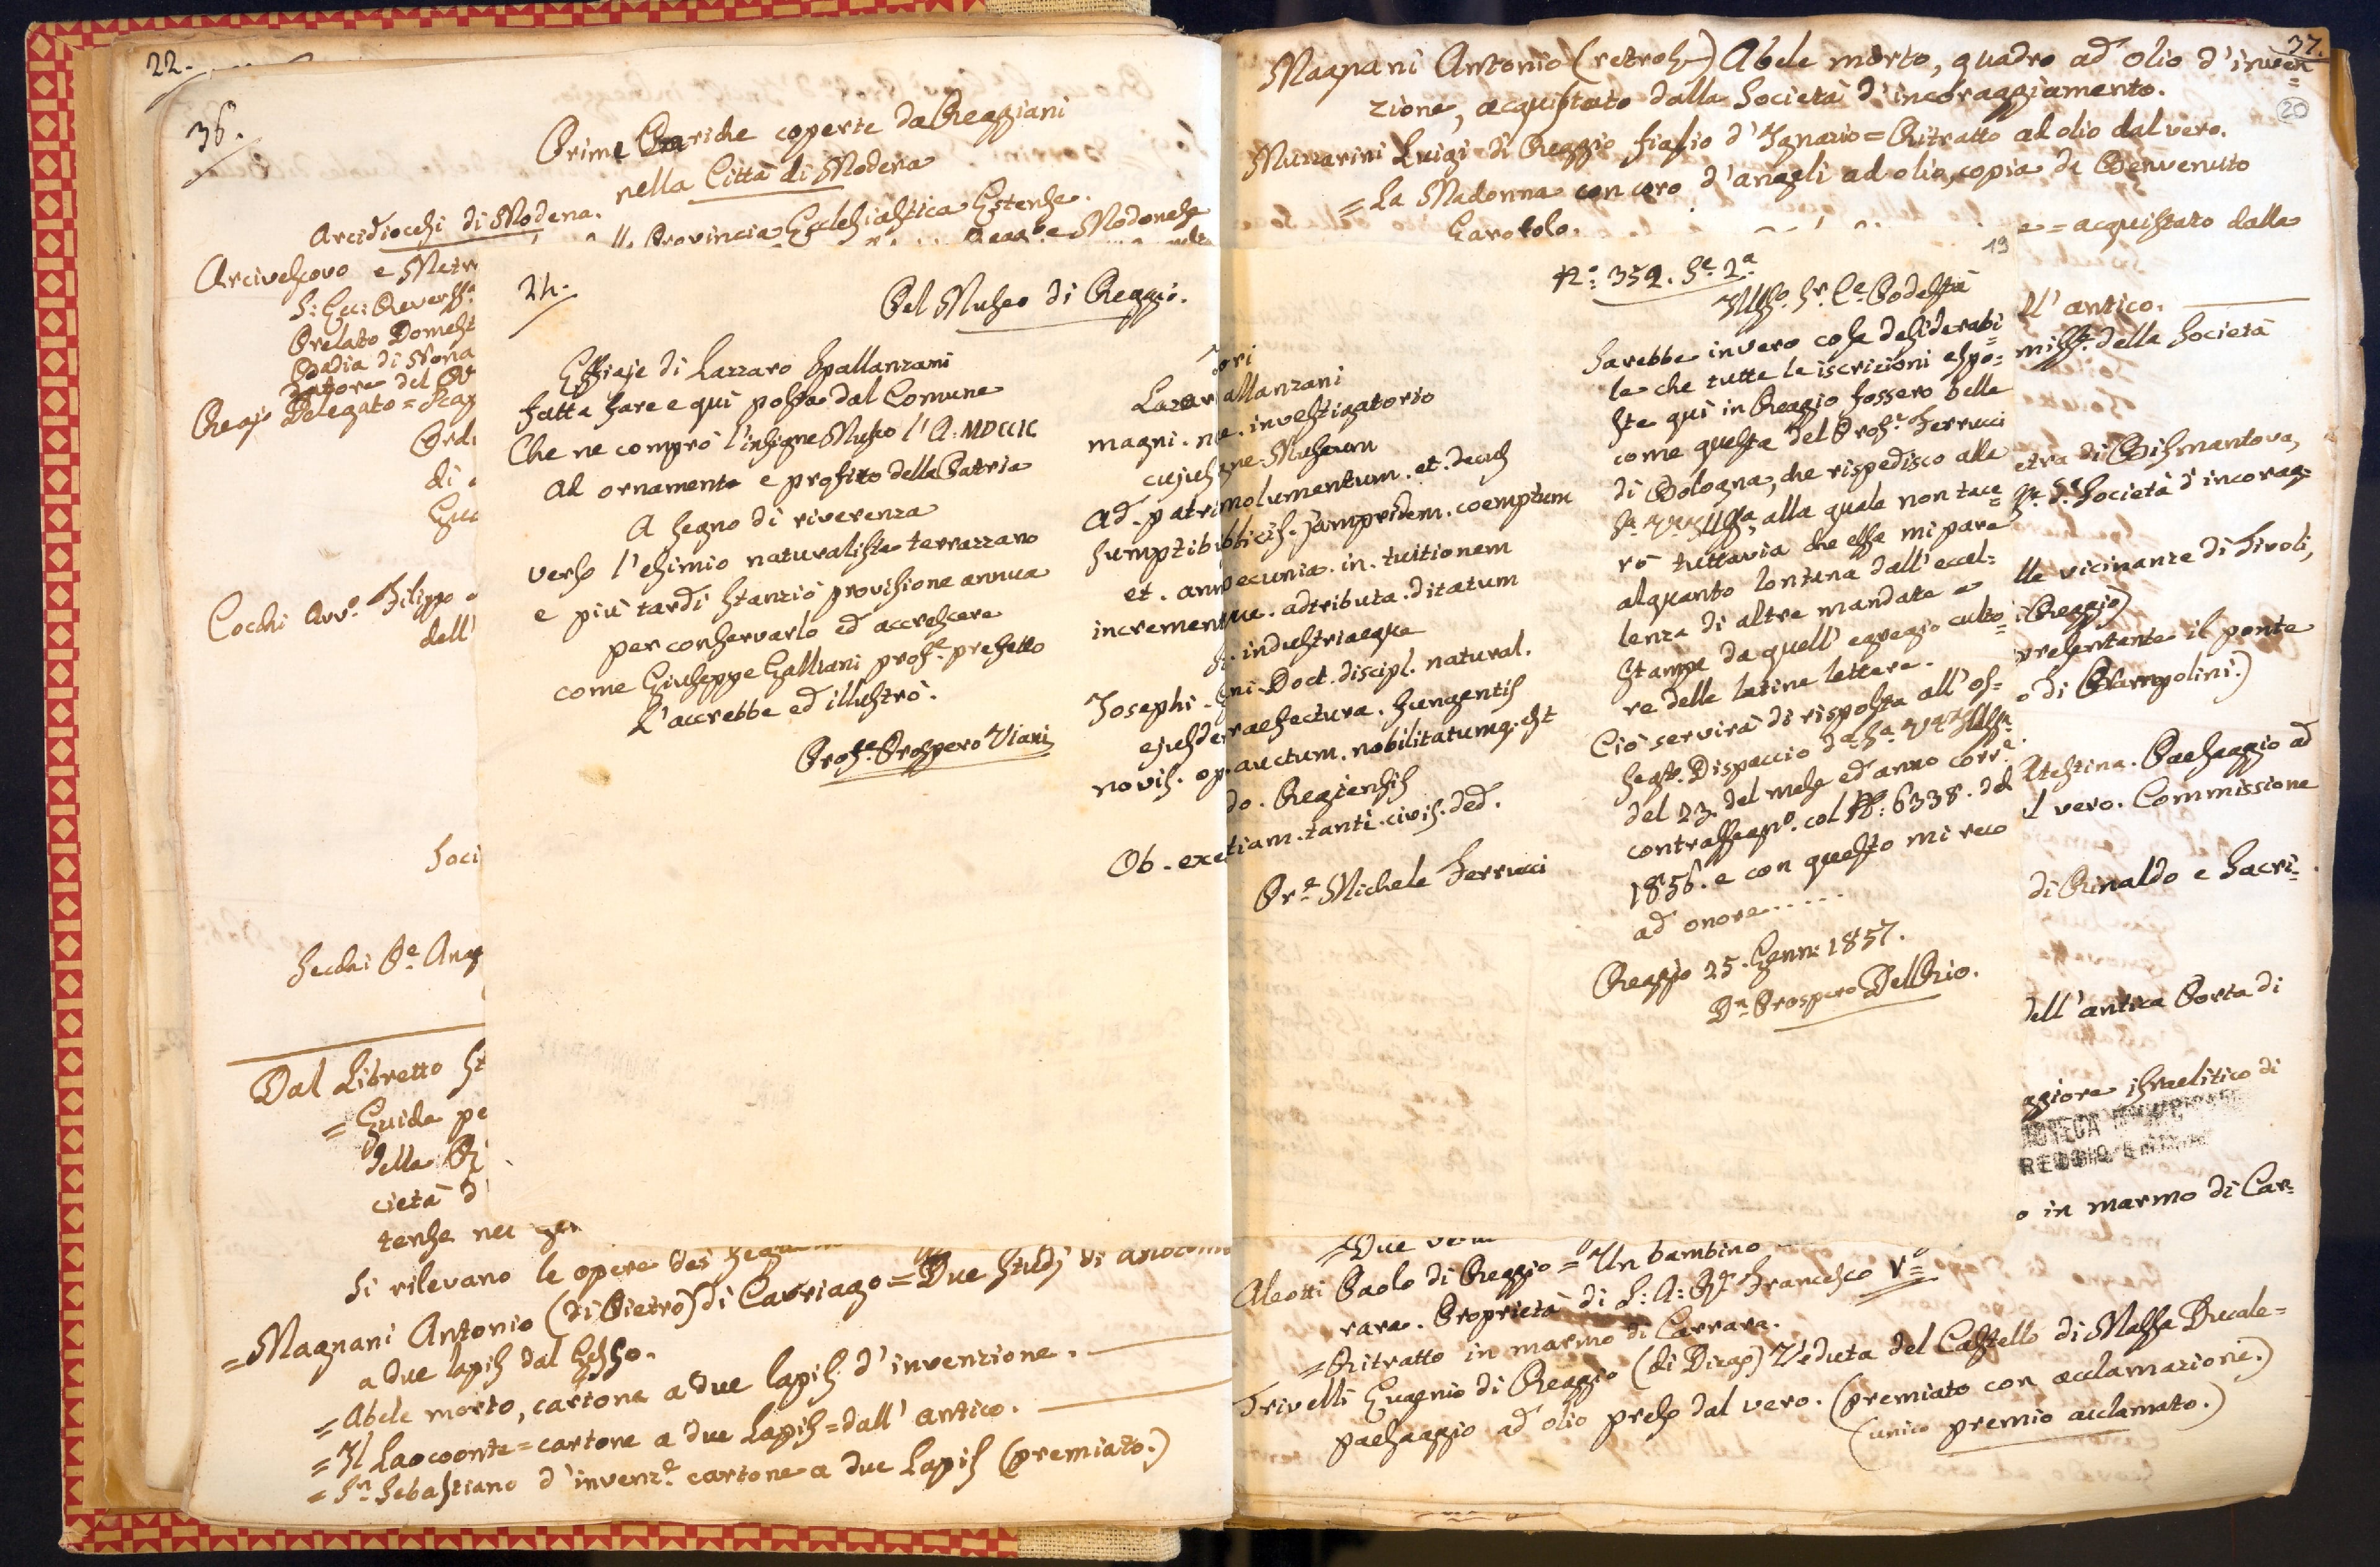 22.
36.
Prime Cariche coperte da Reggiani
nella Città di Modena
Arcidiocesi di Modena.
Provincia Ecclesiastica Estense.
Arcivescovo e Metr
S: Ecc: Rever
Prelato Domest
Badia di Nona
datore del
Reajo Delegato =
Ord
di
Cocchi Avv.o Filippo
dell'
Soci
Secchi P.e Ang
Dal Libretto St
= Guida pe
della
cietà d
tense nei
si rilevano le opere dei
= Magnani Antonio (di Pietro) di Cavriago = Due Studj di
a due lapis dal Gesso.
= Abele morto, cartone a due lapis d'invenzione.
= Il Laocoonte = cartone a due Lapis = dall'antico.
= S.n Sebastiano d'invenz.e cartone a due Lapis (premiato.)
24.
Pel Museo di Reggio.
Effigie di Lazzaro Spallanzani
fatta fare e qui posta dal Comune
Che ne comprò l'insigne Museo l'A: MDCCIC
ad ornamento e profitto della Patria
A segno di riverenza
verso l'esimio naturalista terrazzano
e più tardi stanziò provisione annua
per conservarlo ed accrescere
come Giuseppe Galliani prof.e prefetto
L'accrebbe ed illustrò.
Prof.e Prospero Viani
Lazar allanzani
magni. investigatorio
cujus gne Museum
ad. patri molumentum. et. decus
sumptib blicis. jampridem. coemptum
et. ann ecunia. in. tuitionem
incremen que. adtributa. ditatum
industriaeque
Josephi. ni. Doct. discipl. natural.
ejusde raefectura. fungentis
novis. op. auctum. nobilitatumq. est
do. Regiensis
Ob. exe tiam. tanti. civis. ded.
Pr.e Michele Ferrucci
19
N.o 352. S.e 2.a
Ills.o S.r C.e Podestà
Sarebbe invero cosa desiderabi=
le che tutte le iscrizioni espo=
ste quì in Reggio fossero belle
come questa del Prof.e Ferrucci
di Bologna, che rispedisco alla
alla quale non tace=
rò tuttavia che essa mi pare
alquanto lontana dall'eccel=
lenza di altre mandate a
stampa da quell'egregio culto=
re delle latine lettere.
Ciò servirà di risposta all'os=
seq.o Dispaccio
del 23. del mese ed anno corr.e
contrassegn.o col N: 6338. del
1856. e con questo mi reco
ad onore.....
Reggio 25. Genn: 1857.
D.n Prospero Del Rio.
37.
20
Magnani Antonio (retros.) Abele morto, quadro ad olio d'inven=
zione, acquistato dalla Società d'incoraggiamento.
Muzzarini Luigi di Reggio figlio d'Ignazio = Ritratto ad olio dal vero.
= La Madonna con coro d'angeli ad olio, copia da Benvenuto
Garofolo.
e = acquistato dalla
ll'antico.
miss. della Società
etra di Bismantova,
Società d'incorag=
lle vicinanze di Tivoli,
Reggio)
presentante il ponte
o di Prampolini.)
Atestina. Paesaggio ad
l vero. Commissione
di Rinaldo e Sacri=
dell'antica Porta di
ggiore israelitico di
OTECA MUNICIPALE
REGGIO EMILIA
o in marmo di Car=
= Due
Aleotti Paolo di Reggio = Un bambino
rara. Proprietà di S: A: R. Francesco V.o
= Ritratto in marmo di Carrara.
Trivelli Eugenio di Reggio Veduta del Castello di Massa Ducale=
paesaggio ad olio preso dal vero. (premiato con acclamazione.)
(unico premio acclamato.)